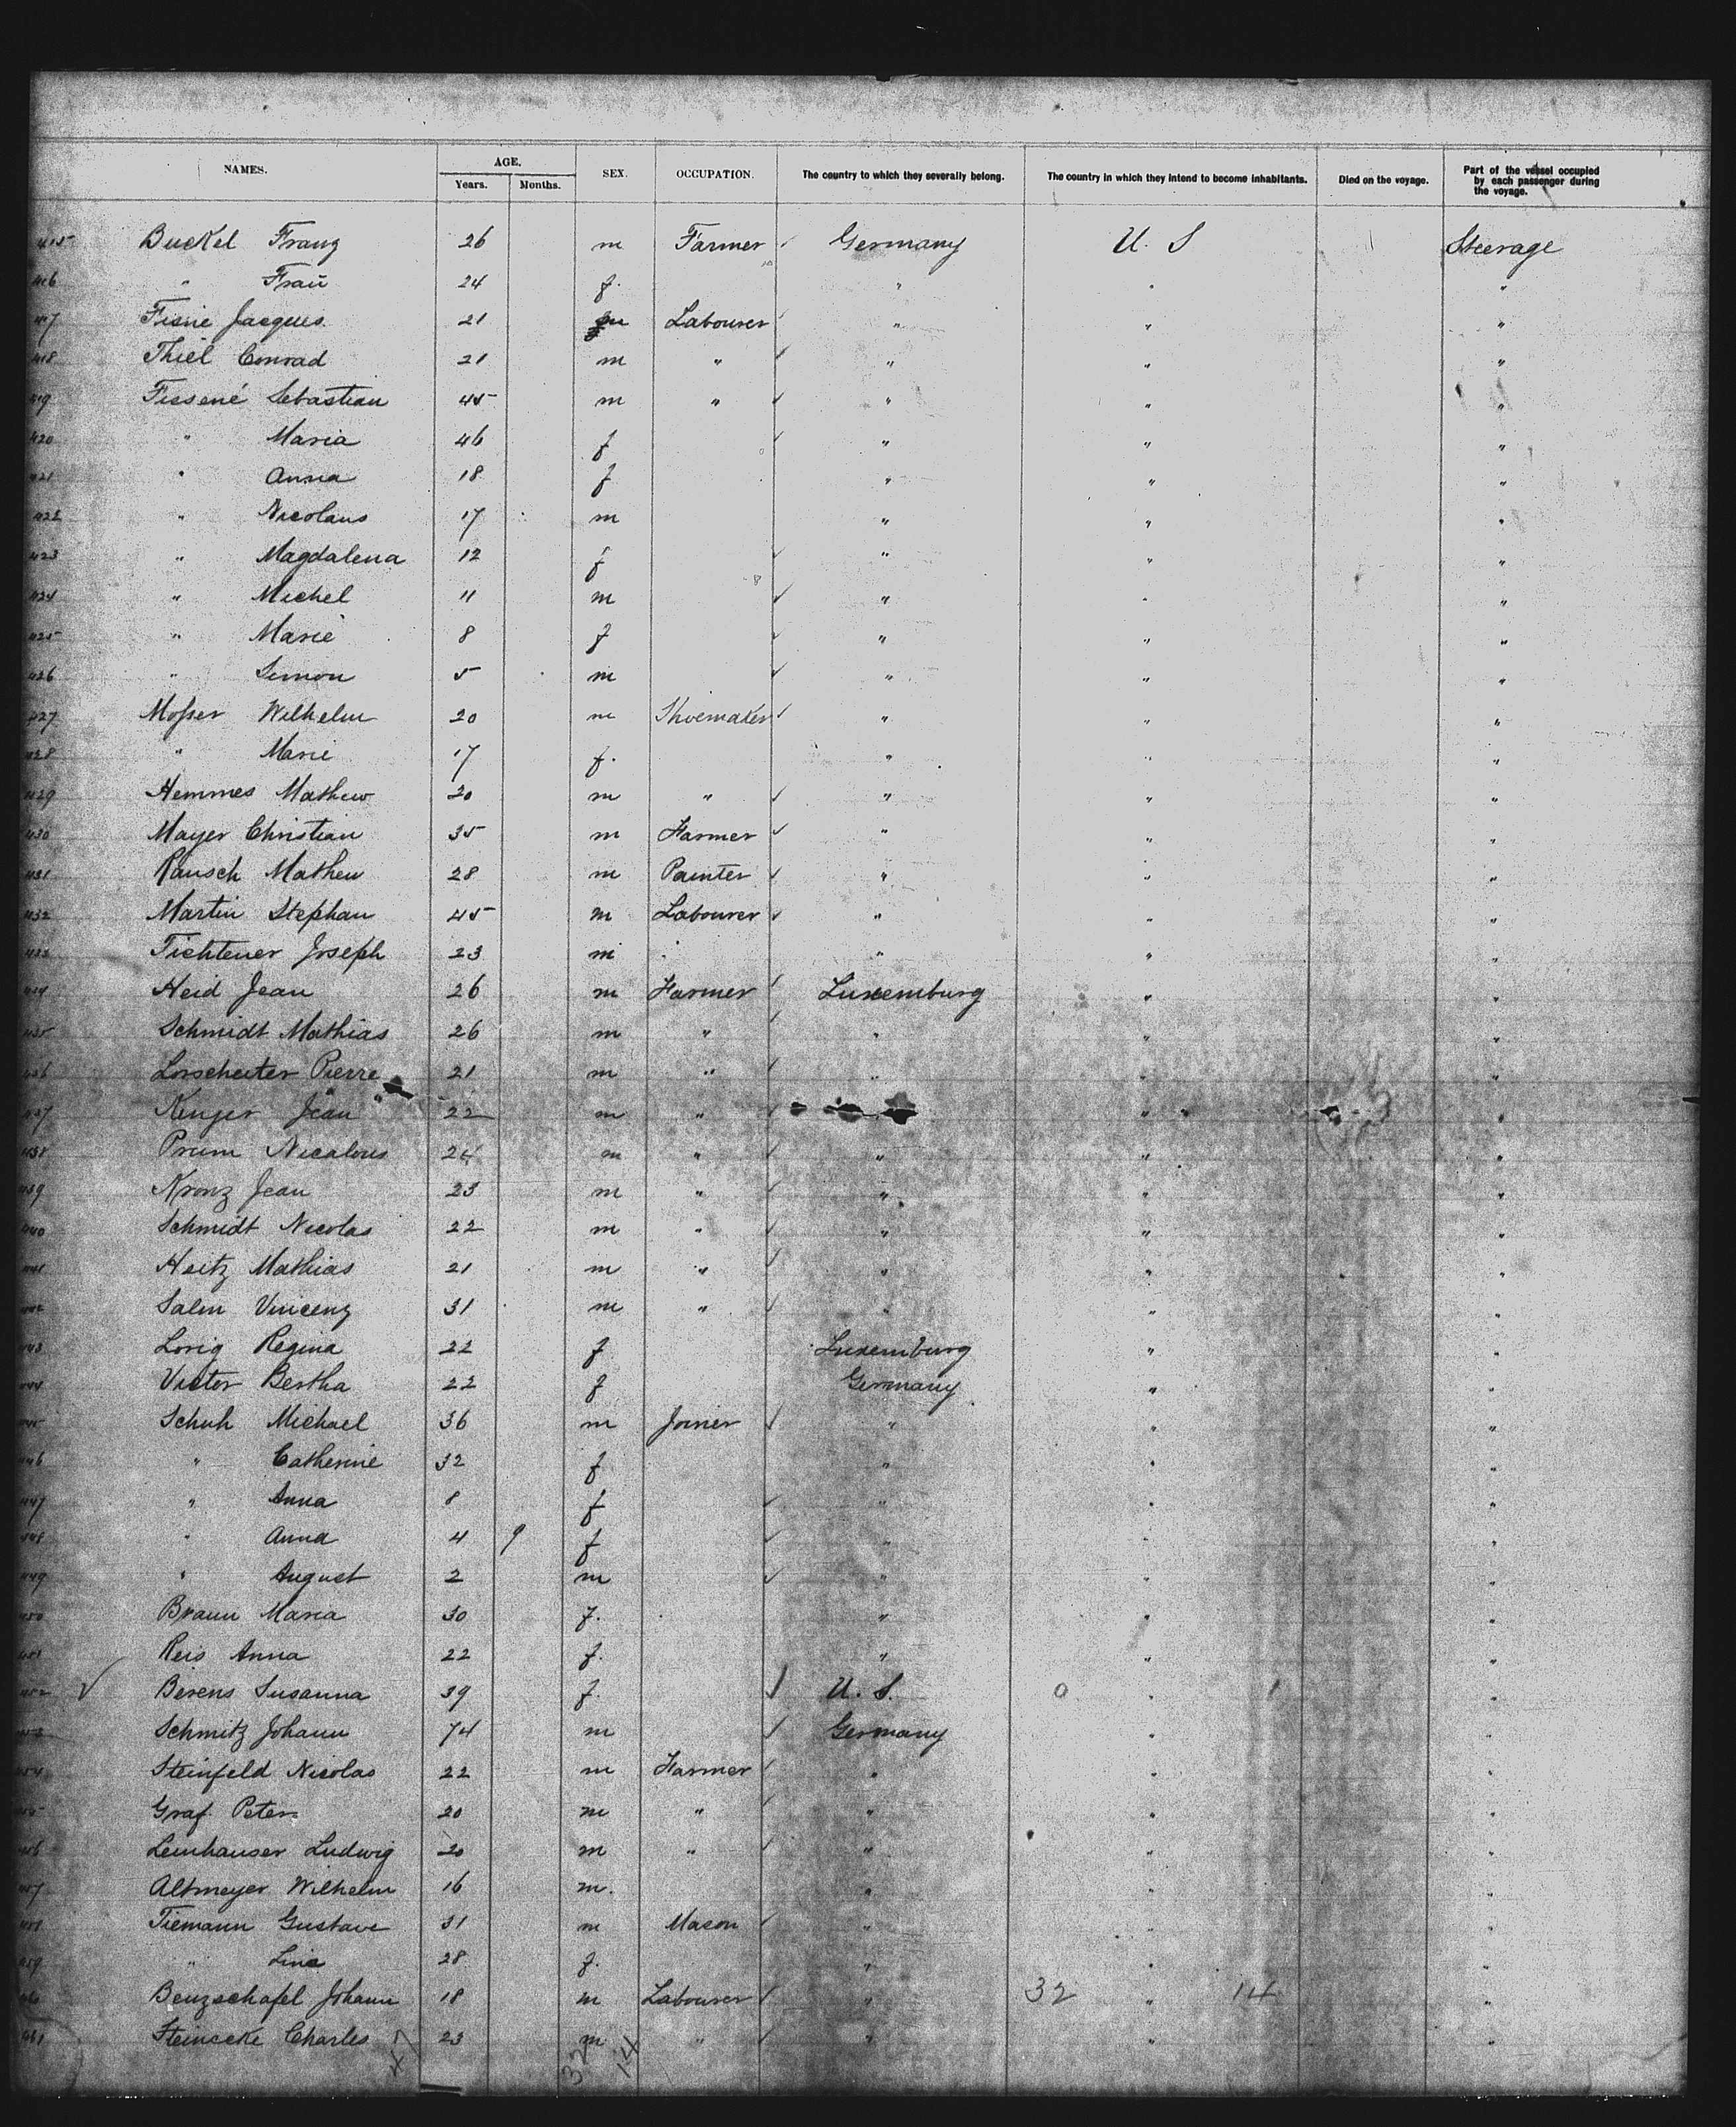 NAMES. AGE. SEX. OCCUPATION. The country to which they severally belong. The country in which they intend to become inhabitants. Died on the voyage. Part of the vessel occupied by each passenger during the voyage.
Years. Months.
415 Buckel Franz 26 m Farmer Germany U. S Steerage
416 " Frau 24 f. " " "
417 Jacques 21 m Labourer " " "
418 Thiel Conrad 21 m " " " "
419 Fissené Sebastian 45 m " " " "
420 " Maria 46 f " " "
421 " Anna 18 f " " "
422 " Nicolaus 17 m " " "
423 " Magdalena 12 f " " "
424 " Michel 11 m " " "
425 " Marie 8 f " " "
426 " Simon 5 m " " "
427 Mosser Wilhelm 20 m Shoemaker " " "
428 " Marie 17 f. " " "
429 Hemmes Mathew 20 m " " " "
430 Mayer Christian 35 m Farmer " " "
431 Rausch Mathew 28 m Painter " " "
432 Martin Stephan 45 m Labourer " " "
433 Tichtener Joseph 23 m " " " "
434 Heid Jean 26 m Farmer Luxemburg " "
435 Schmidt Mathias 26 m " " " "
436 Lorscheiter Pierre 21 m " " " "
437 Jean 22 m " " "
438 Prum Nicalous 24 m " " " "
439 Kronz Jean 23 m " " " "
440 Schmidt Nicolas 22 m " " " "
441 Heitz Mathias 21 m " " " "
442 Salm Vincenz 31 m " " " "
443 Lorig Regina 22 f Luxemburg " "
444 Victor Bertha 22 f Germany " "
445 Schuh Michael 36 m Joiner " " "
446 " Catherine 32 f " " "
447 " Anna 8 f " " "
448 " Anna 4 9 f " " "
449 " August 2 m " " "
450 Braun Maria 30 f. " " "
451 Reis Anna 22 f. " " "
452 Berens Susanna 39 f. U. S. 0 " "
453 Schmitz Johann 74 m Germany " "
454 Steinfeld Nicolas 22 m Farmer " " "
455 Graf Peter 20 m " " " "
456 Leinhauser Ludwig 20 m " " " "
457 Altmeyer Wilhelm 16 m. " " "
458 Tiemann Gustave 31 m Mason " " "
459 " Lina 28 f. " " "
460 Benzschafel Johann 18 m Labourer " 32 " 14 "
461 Steinecke Charles 23 m " " " "
47 32 14